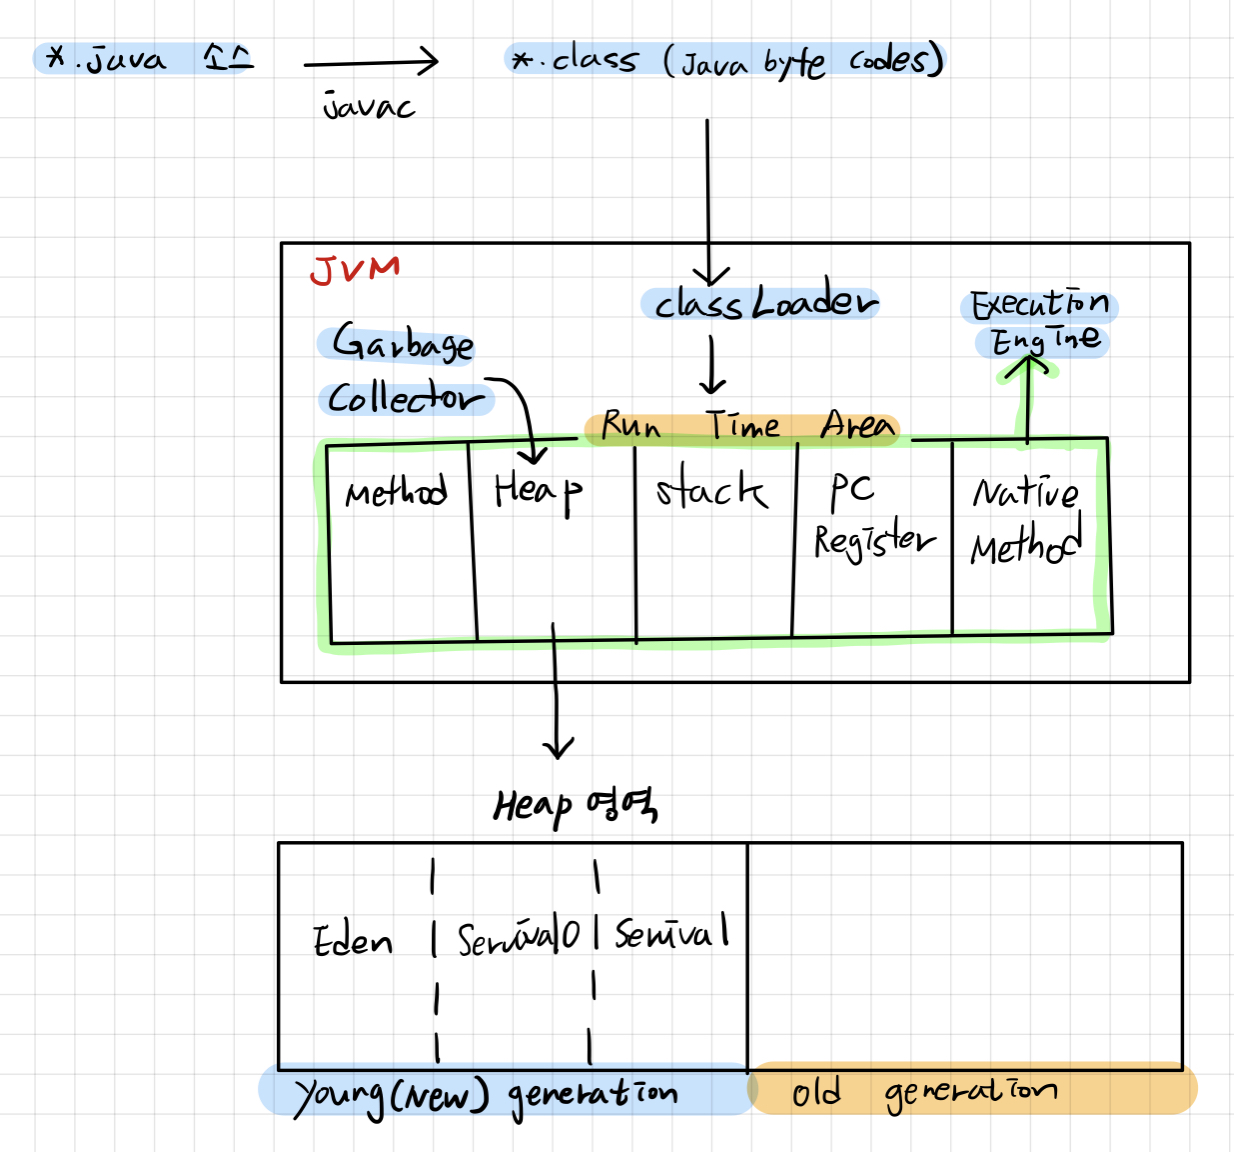 *.java 소스
javac
*.class (Java byte codes)
JVM
Garbage
Collector
classLoader
Execution
Engine
Run Time Area
Method
Heap
stack
PC
Register
Native
Method
Heap 영역
Eden
Servival0
Servival
Young(New) generation
old generation